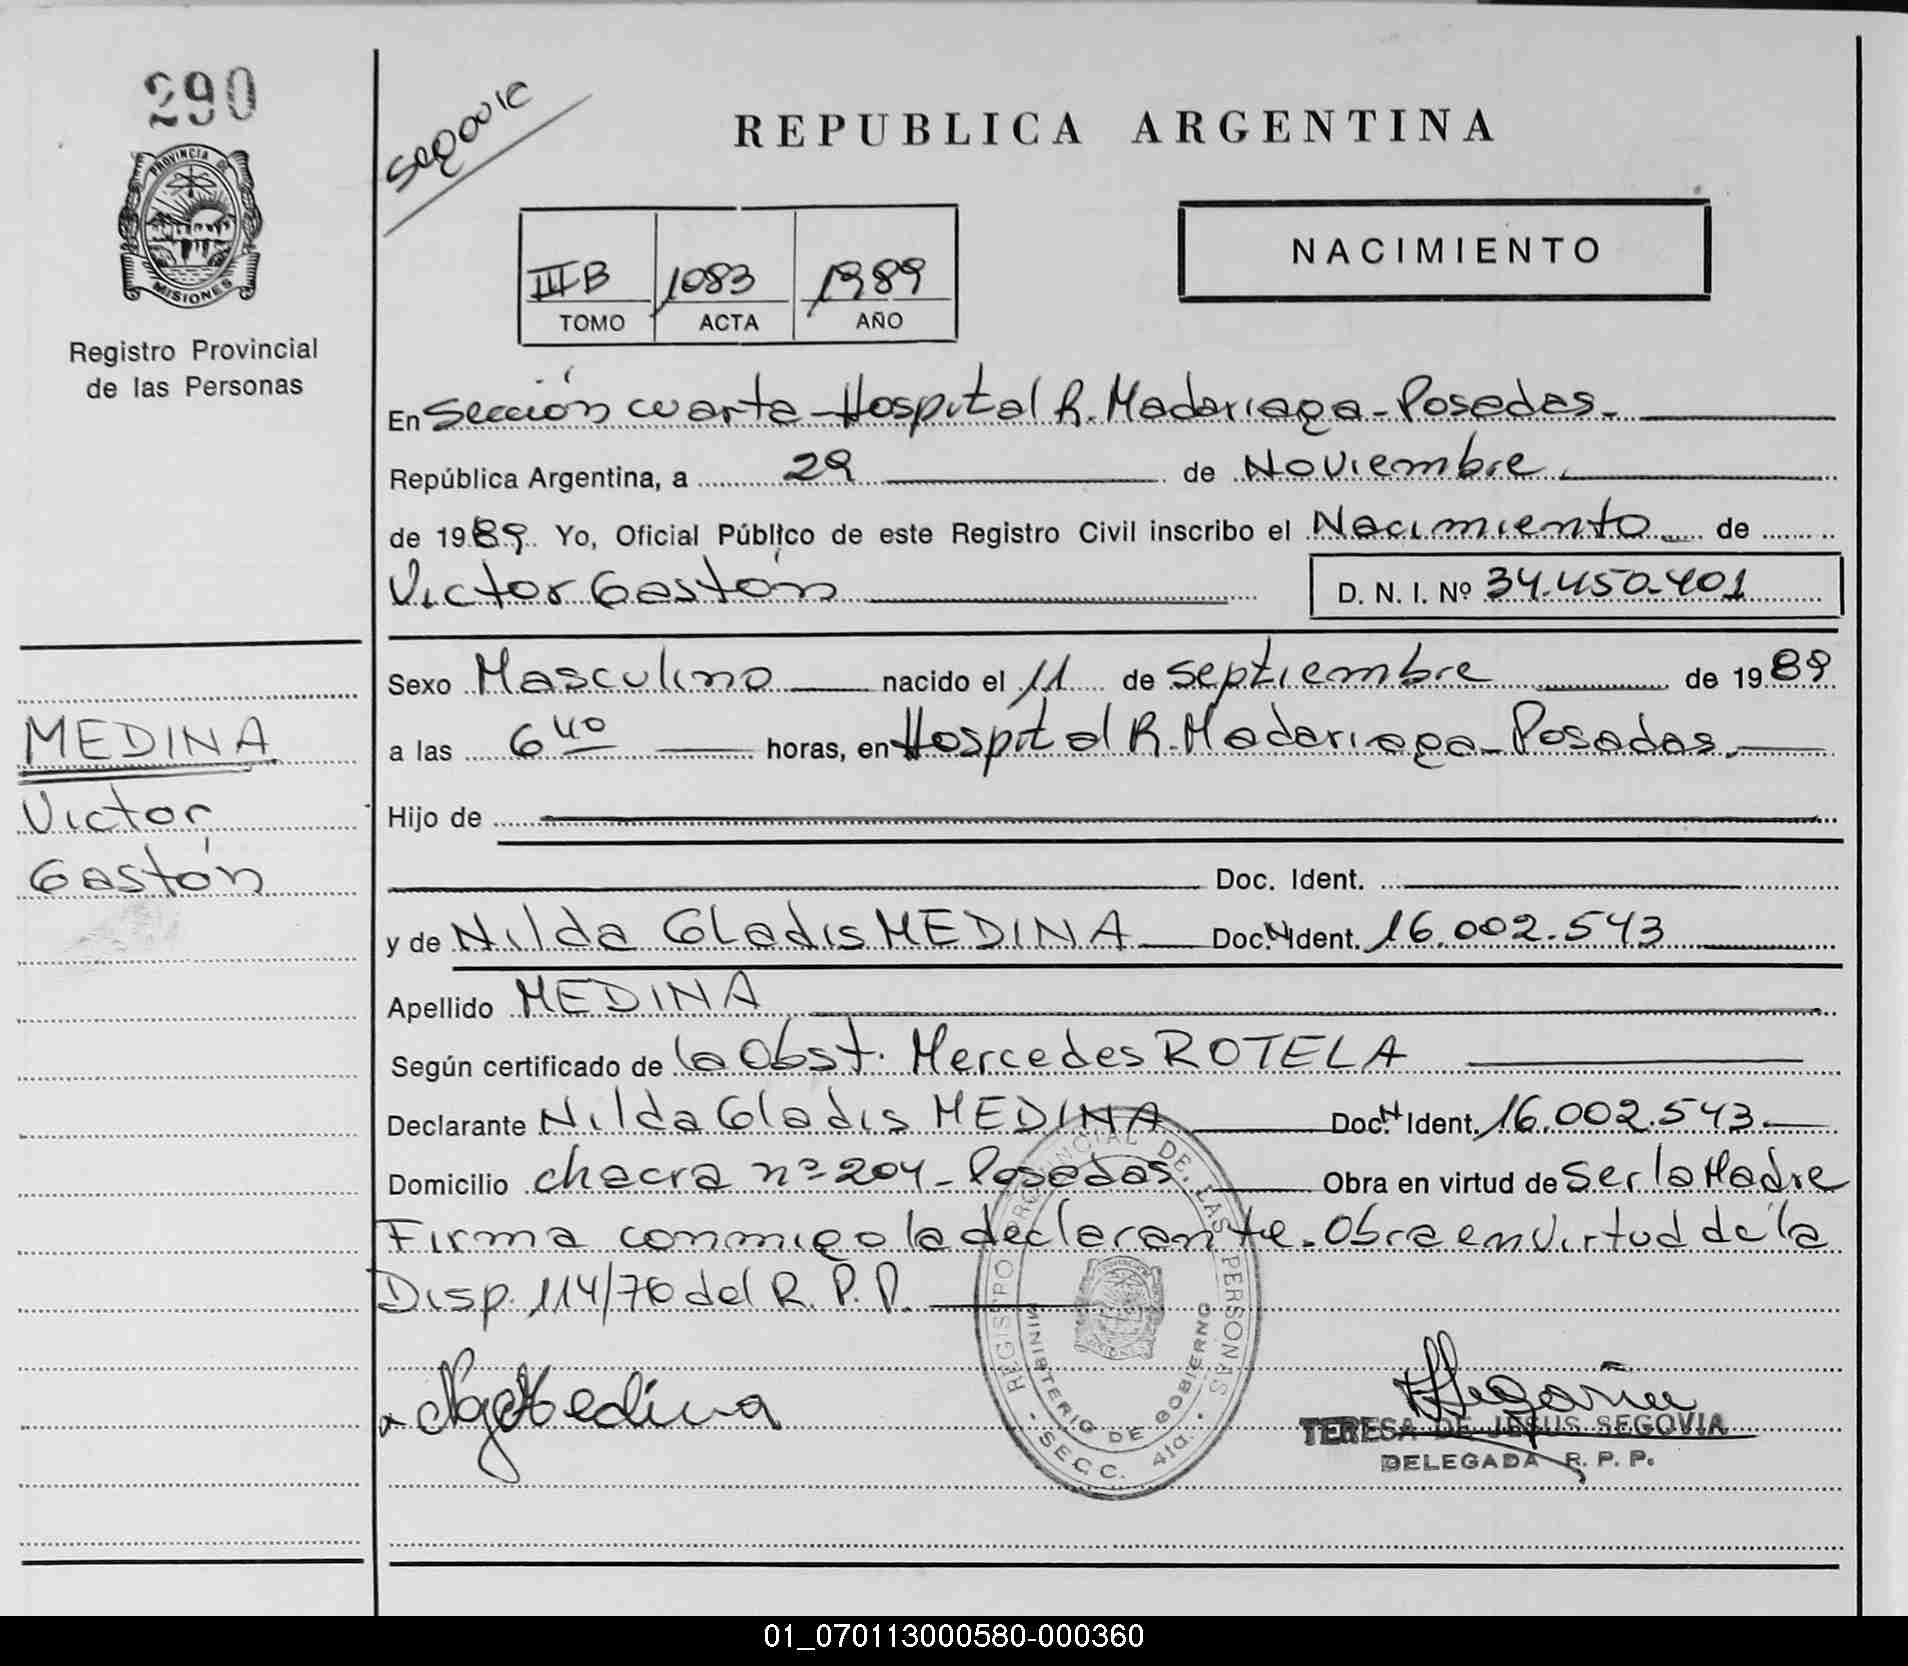 290
PROVINCIA DE
MISIONES
Registro Provincial
de las Personas
Segovia
REPUBLICA ARGENTINA
IIIB 1083 1989
TOMO ACTA AÑO
NACIMIENTO
En Sección cuarta-Hospital R. Madariaga-Posadas.
República Argentina, a 29 de Noviembre
de 1989. Yo, Oficial Público de este Registro Civil inscribo el Nacimiento de
Victor Gastón D. N. I. Nº 34.450.401
Sexo Masculino nacido el 11 de septiembre de 1989
a las 6 40 horas, en Hospital R. Madariaga-Posadas.
Hijo de
Doc. Ident.
y de Nilda Gladis MEDINA Doc. N Ident. 16.002.543
Apellido MEDINA
Según certificado de la Obst. Mercedes ROTELA
Declarante Nilda Gladis MEDINA Doc. N Ident. 16.002.543
Domicilio chacra nº 204-Posadas. Obra en virtud de ser la Madre
Firma conmigo la declarante. Obra en virtud de la
Disp. 114/76 del R. P. P.
MEDINA
Victor
Gastón
REGISTRO PROVINCIAL DE LAS PERSONAS
MINISTERIO DE GOBIERNO
- SECC. 4ta. -
Medina
TERESA DE JESUS SEGOVIA
DELEGADA R. P. P.
01_070113000580-000360